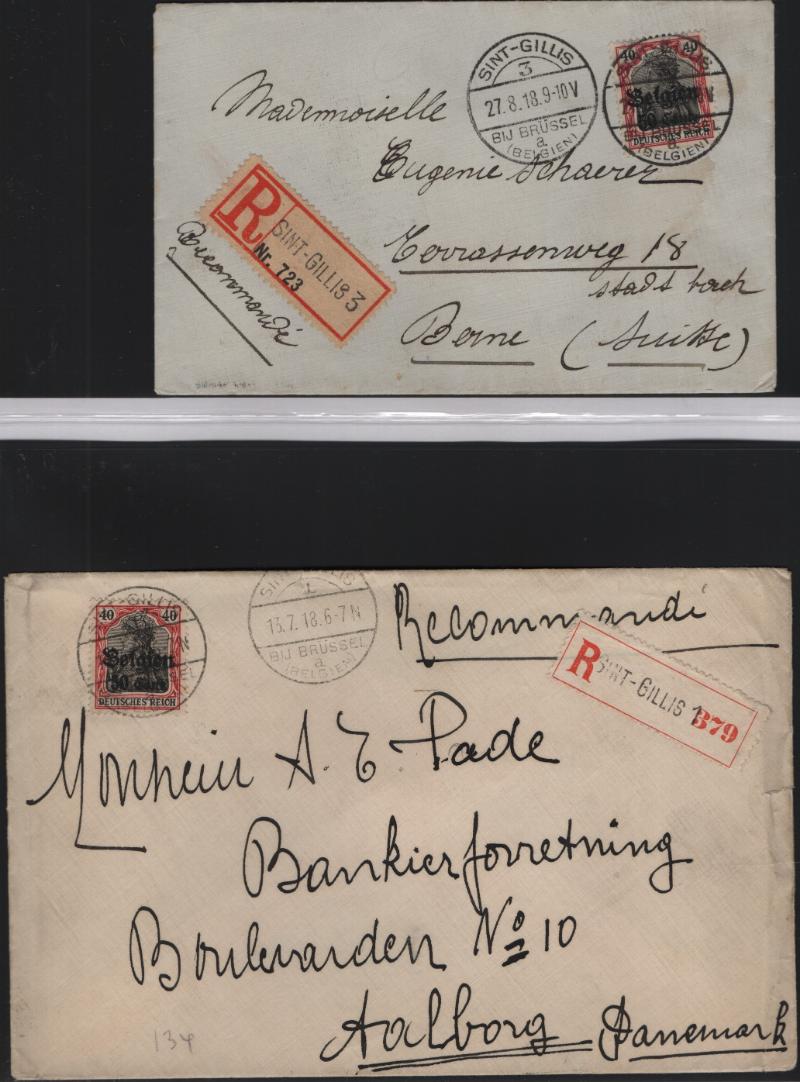 SINT-GILLIS
3
27.8.18.9-10V
BIJ BRÜSSEL
a
(BELGIEN)
40 40
Belgien
50 Cent.
DEUTSCHES REICH
BIJ BRÜSSEL
a
(BELGIEN)
Mademoiselle
Eugenie Schaerer
Terrassenweg 18
Stadt
Berne (Suisse)
R
SINT-GILLIS 3
Nr. 723
Recommandé
SINT-GILLIS
40 40
Belgien
50 Cent.
DEUTSCHES REICH
SINT-GILLIS
1
13.7.18.6-7N
BIJ BRÜSSEL
a
(BELGIEN)
Recommandé
R
SINT-GILLIS 1
379
A. E. Pade
Bankierforretning
Boulevarden No 10
Aalborg Danemark
134